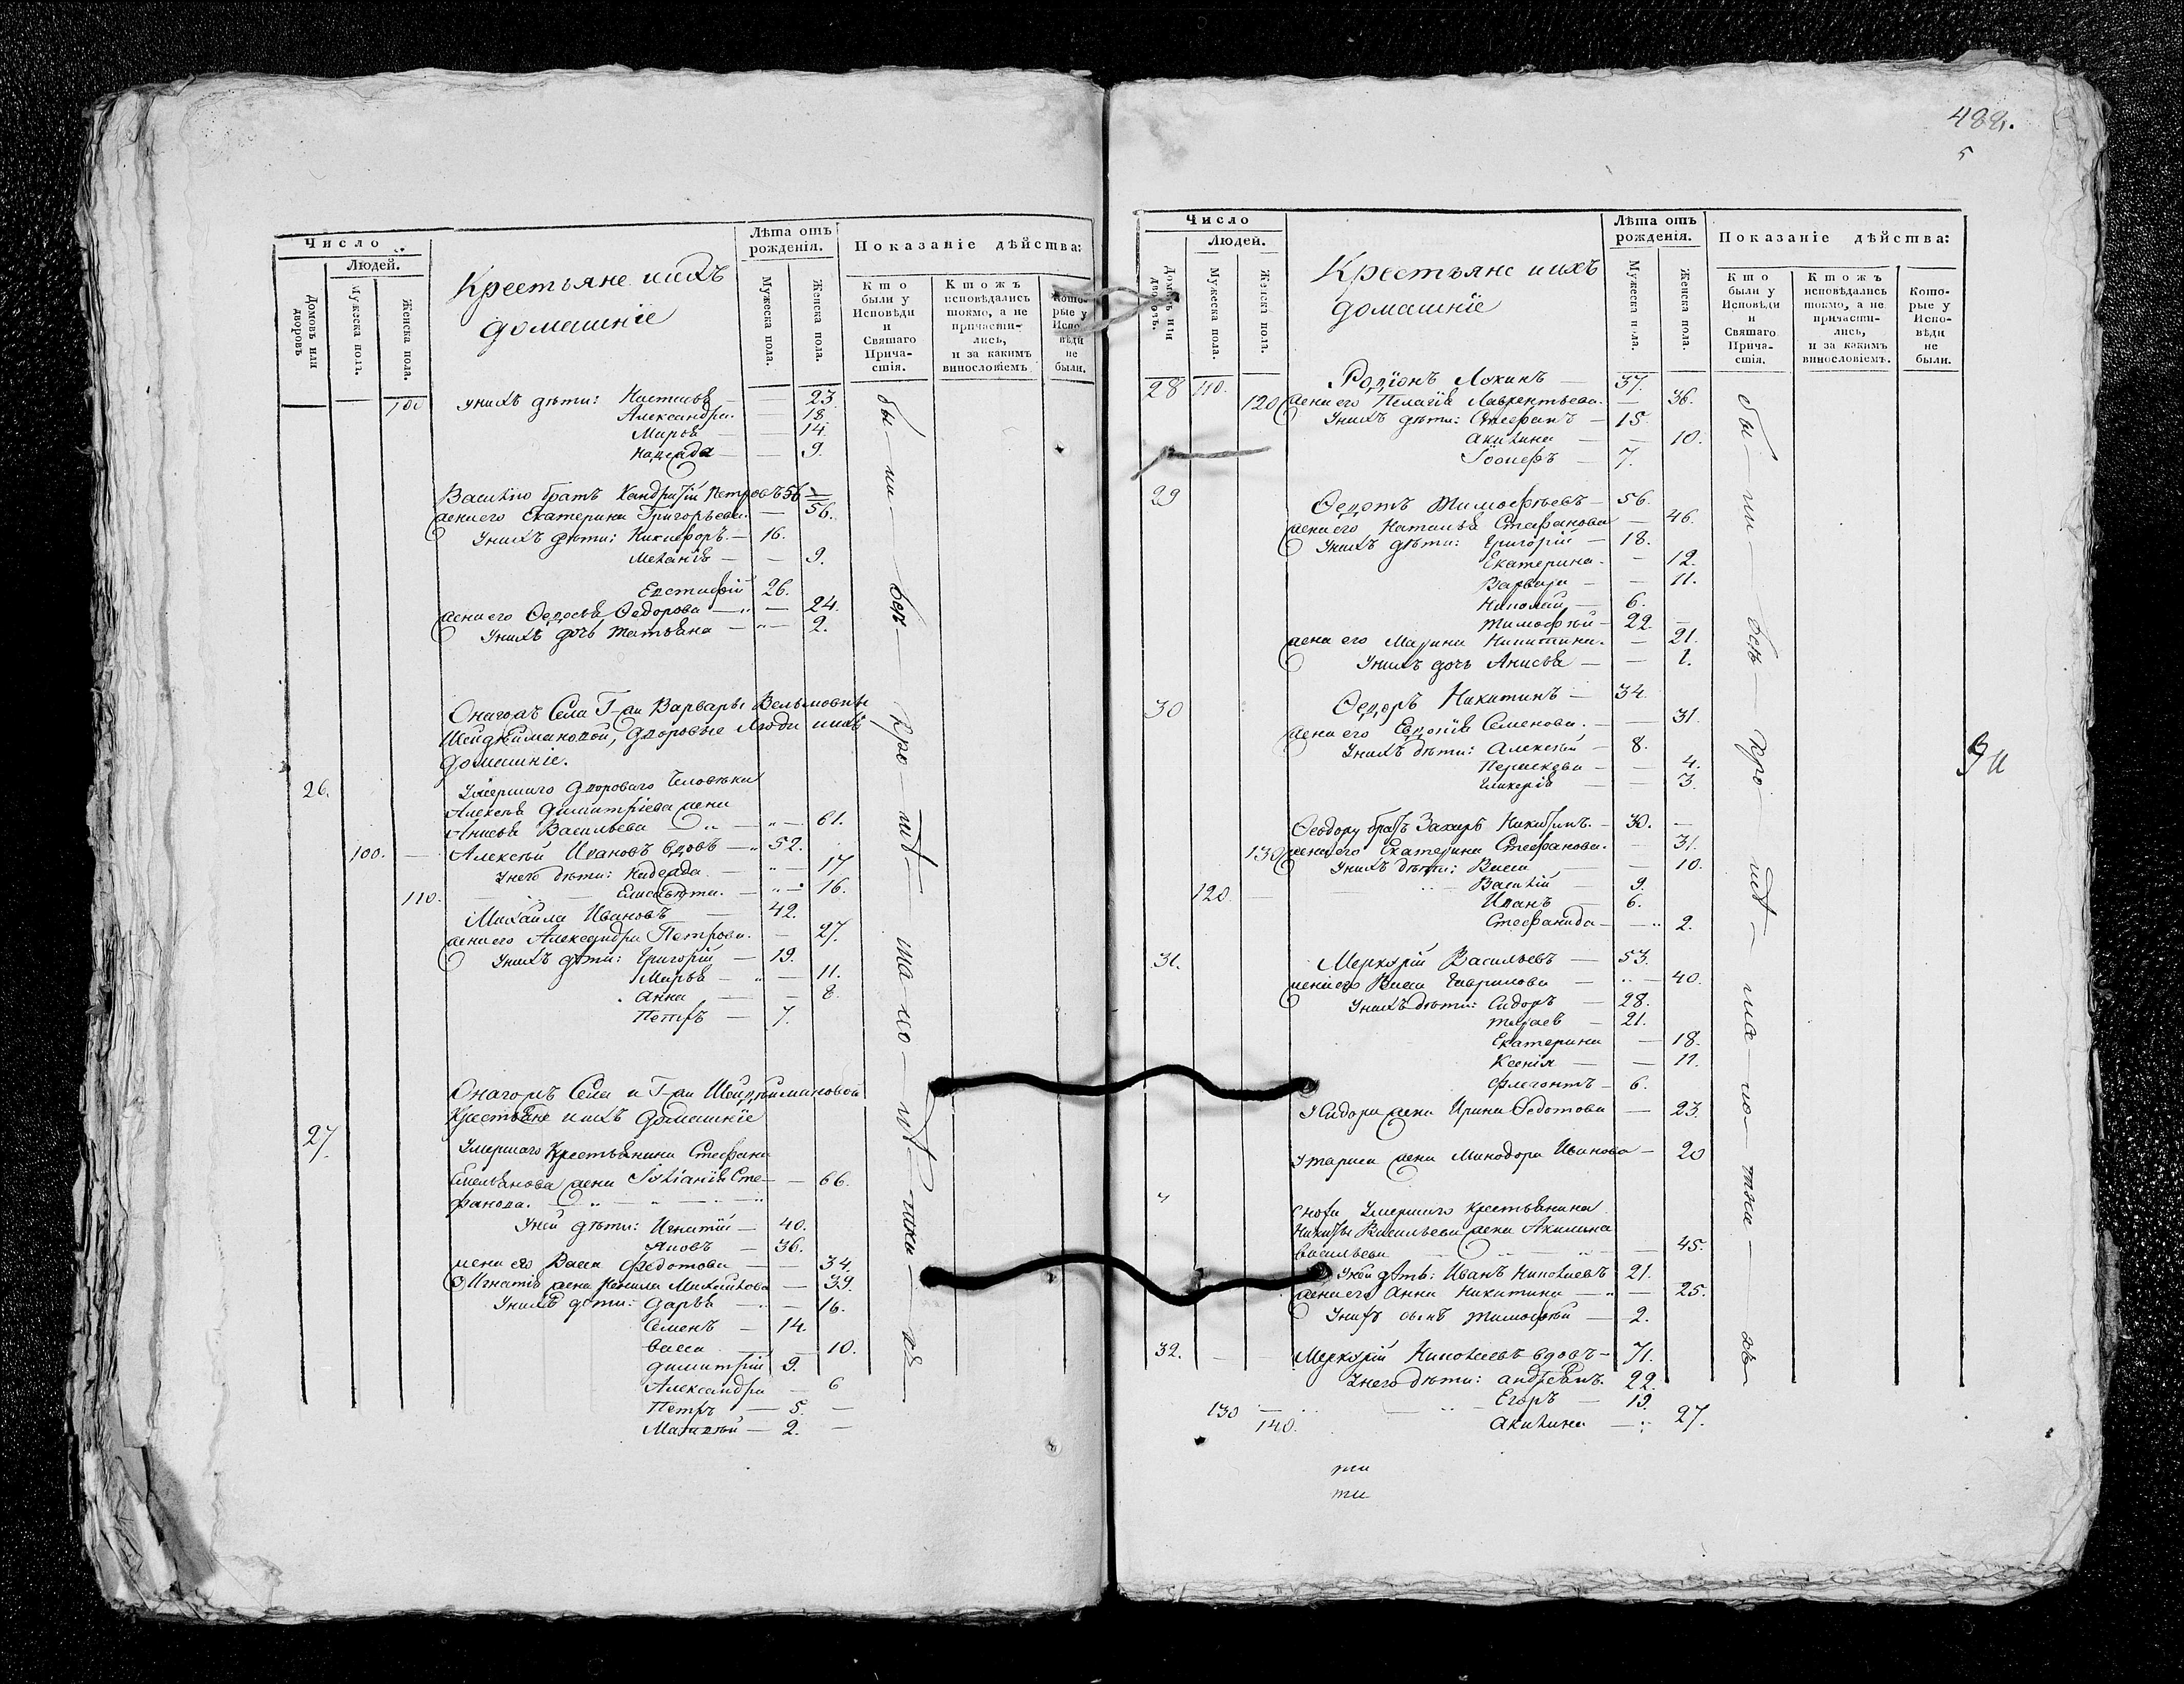 Число
Людей.
Домовъ или дворовъ
Мужеска пола.
Женска пола.
Крестьяне ихъ
домашніе
Лѣта отъ рожденія.
Мужеска пола.
Женска пола.
Показаніе дѣйства:
Кто были у Исповѣди и Святаго Прича-стія.
Ктожъ исповѣдались токмо, а не причасти-лись, и за какимъ винословіемъ
Кото-рые у Испо-вѣди не были.
100 Унихъ дѣти: Настасья — — 23.
Александра. 18
Марья — — 14.
Надежда — — 9.
Василію братъ Кандратій Петровъ 56
жена его Екатерина Григорьева. — 56.
Унихъ дѣти: Никифоръ. — 16.
Меланія — — 9.
Евстафій 26.
жена его Ѳедосья Ѳедорова — — 24.
Унихъ дочь Татьяна — — 2.
Онагожъ Села Г-жи Варвары
дворовые Люди ихъ
домашніе.
26. Умершаго двороваго Человѣка
Алексѣя Димитріева жена
Анисья Васильева — — 61.
100. — Алексѣй Ивановъ вдовъ — 52.
Унего дѣти: Надежда. — — 17
110. Елисавета. — — 16.
Михайла Ивановъ — 42.
жена его Александра Петрова. — 27.
Унихъ дѣти: Григорій — 19.
Марья — — 11.
Анна — — 8.
Петръ — 7.
Онагожъ Села и Г-жи
Крестьяне ихъ Домашніе
27. Умершаго Крестьянина Стефана
Емельянова жена Сте- — 66.
фанова.
Уней дѣти: Игнатій — 40.
Яковъ — 36.
жена его Васса Федотова — — 34.
Игнатія жена Михайлова — 39.
Унихъ дѣти: Дарья — — 16.
Семенъ — 14.
Васса — — 10.
Димитрій 9.
Александра — 6
Петръ — 5. —
Матвѣй — 2. —
бы — ли — всѣ — кро — мѣ —
488.
5
Число
Людей.
Домовъ или дворовъ.
Мужеска пола.
Женска пола.
Крестьяне ихъ
домашніе
Лѣта отъ рожденія.
Мужеска пола.
Женска пола.
Показаніе дѣйства:
Кто были у Исповѣди и Святаго Прича-стія.
Ктожъ исповѣдались токмо, а не причасти-лись, и за какимъ винословіемъ.
Кото-рые у Испо-вѣди не были.
28 110. Родіонъ — 37.
120 жена его Пелагія Лаврентьева. — 36.
Унихъ дѣти: Стефанъ — 15.
Акилина — — 10.
— 7.
29 Ѳедотъ Тимофѣевъ — 56.
жена его Наталья Стефанова — 46.
Унихъ дѣти: Григорій — 18.
Екатерина. — 12.
Варвара — — 11.
Николай — 6.
Тимофѣй — 22. —
жена его Марина Никитина. — 21.
Унихъ дочь Анисья — — 1.
30 Ѳедоръ Никитинъ — 34.
жена его Евдокія Семенова. — — 31.
Унихъ дѣти: Алексѣй — 8.
Параскева — — 4.
Гликерія — — 3.
Ѳеодору братъ Захаръ Никитинъ. — 30. —
130 жена его Екатерина Стефанова. — 31.
Унихъ дѣти: Васса — — 10.
Василій — 9.
120 — Иванъ — 6.
Стефанида — — 2.
31. Меркурій Васильевъ — 53.
жена его Васса Гаврилова — — 40.
Унихъ дѣти: Сидоръ — 28.
Тарасъ — 21.
Екатерина — 18.
Ксенія — — 11.
Флегонтъ — 6.
У Сидора жена Ирина Ѳедотова — 23.
У Тараса жена Минодора Иванова — 20
Сноха Умершаго Крестьянина
Никиты Васильева жена Акилина
Васильева — — 45.
Уней дѣти: Иванъ Николаевъ 21.
жена его Анна Никитина — — 25.
Унихъ сынъ Тимофѣй — 2.
32. — — Меркурій Николаевъ вдовъ — 71.
Унего дѣти: 22.
Егоръ — 19.
130 140. Акилина — 27.
бы — ли — всѣ — кро — мѣ —
ти
ти